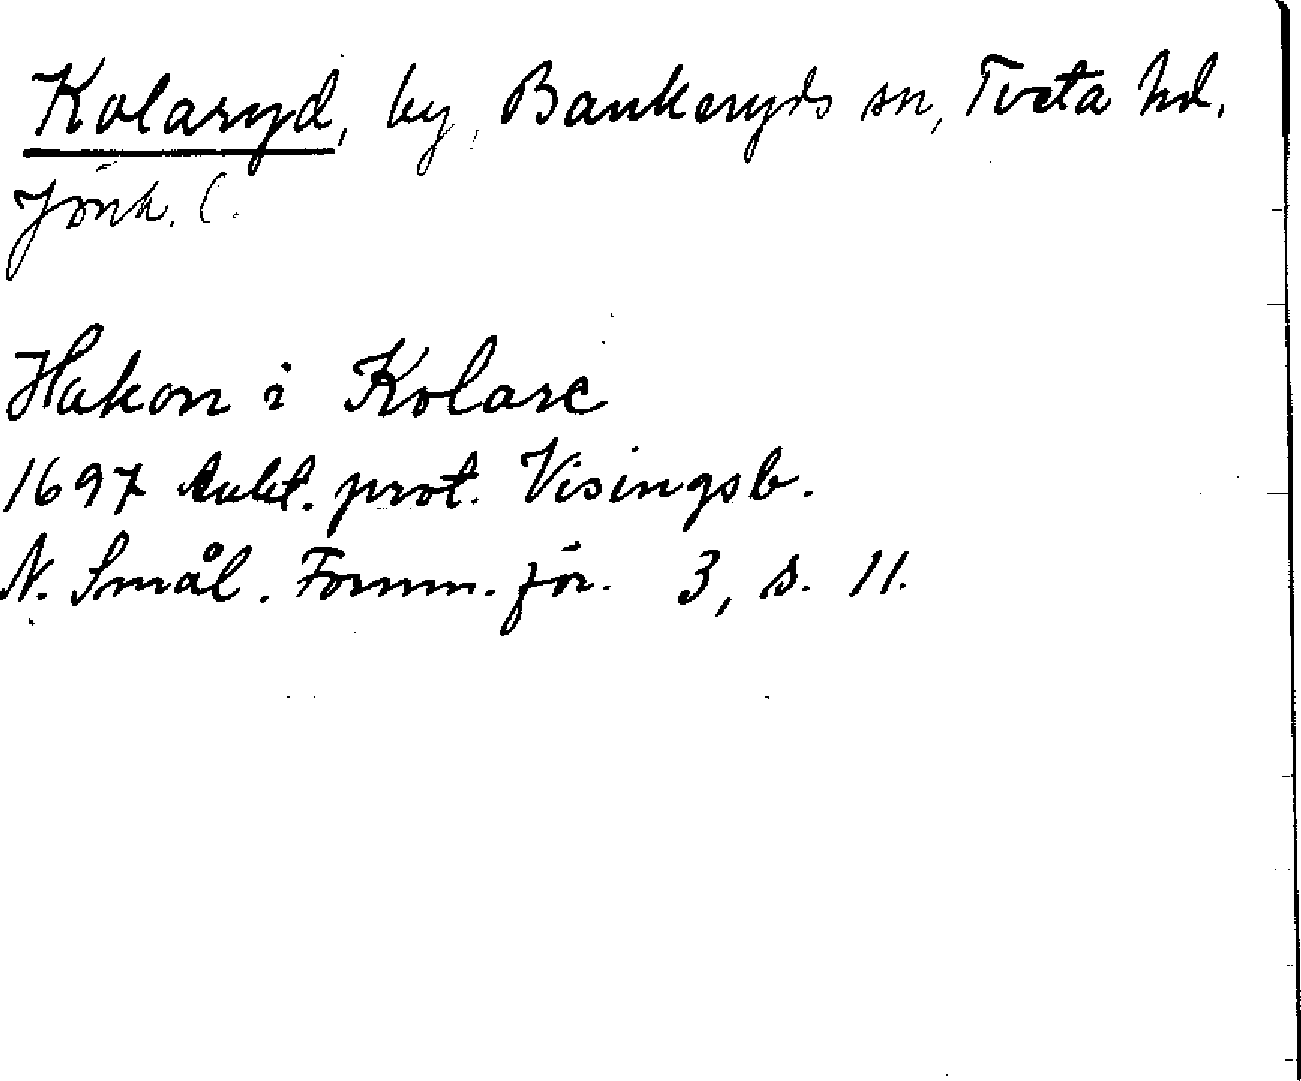 Kolaryd, by, Bankeryds sn, Tveta hd.
Jönk. l.
Hakon i Kolare
1697 Aukt. prot. Visingsb.
N. Smål. Fornm. för. 3, s. 11.